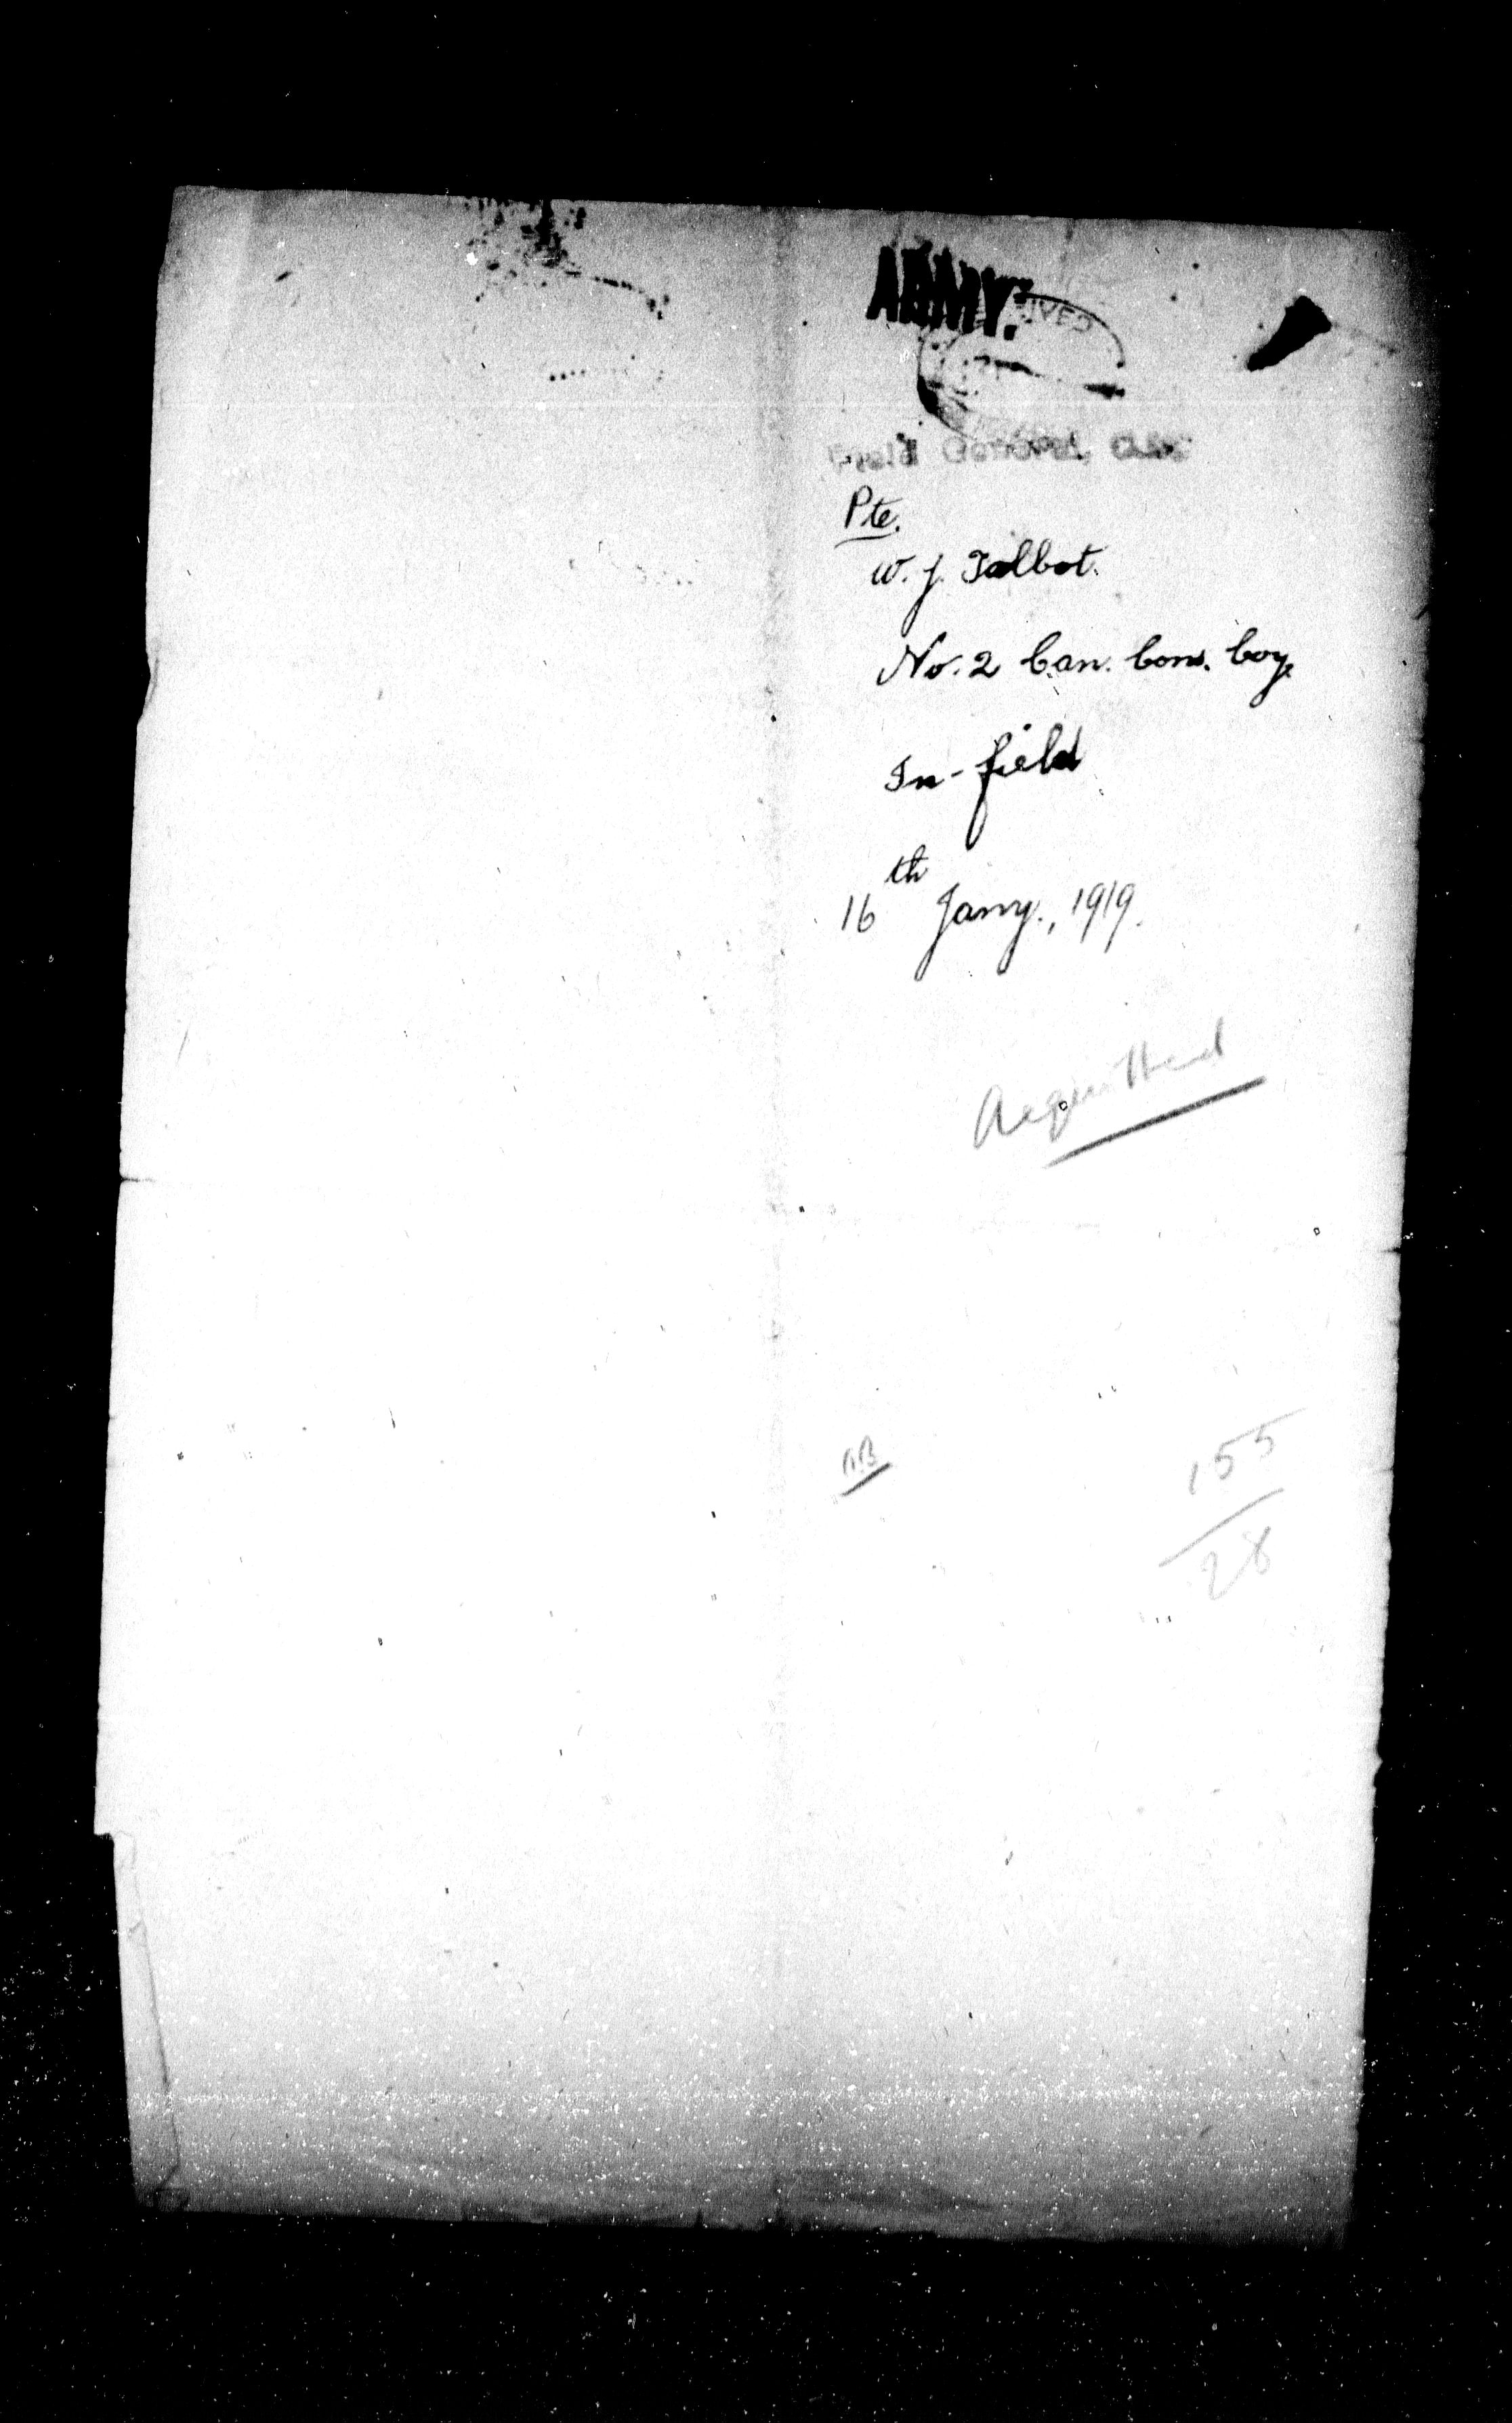 ARMY.
Field General
Pte.
W. J. Talbot.
No. 2 Can. Cons. Coy.
In-field
16th Jany., 1919.
Acquitted
155
28